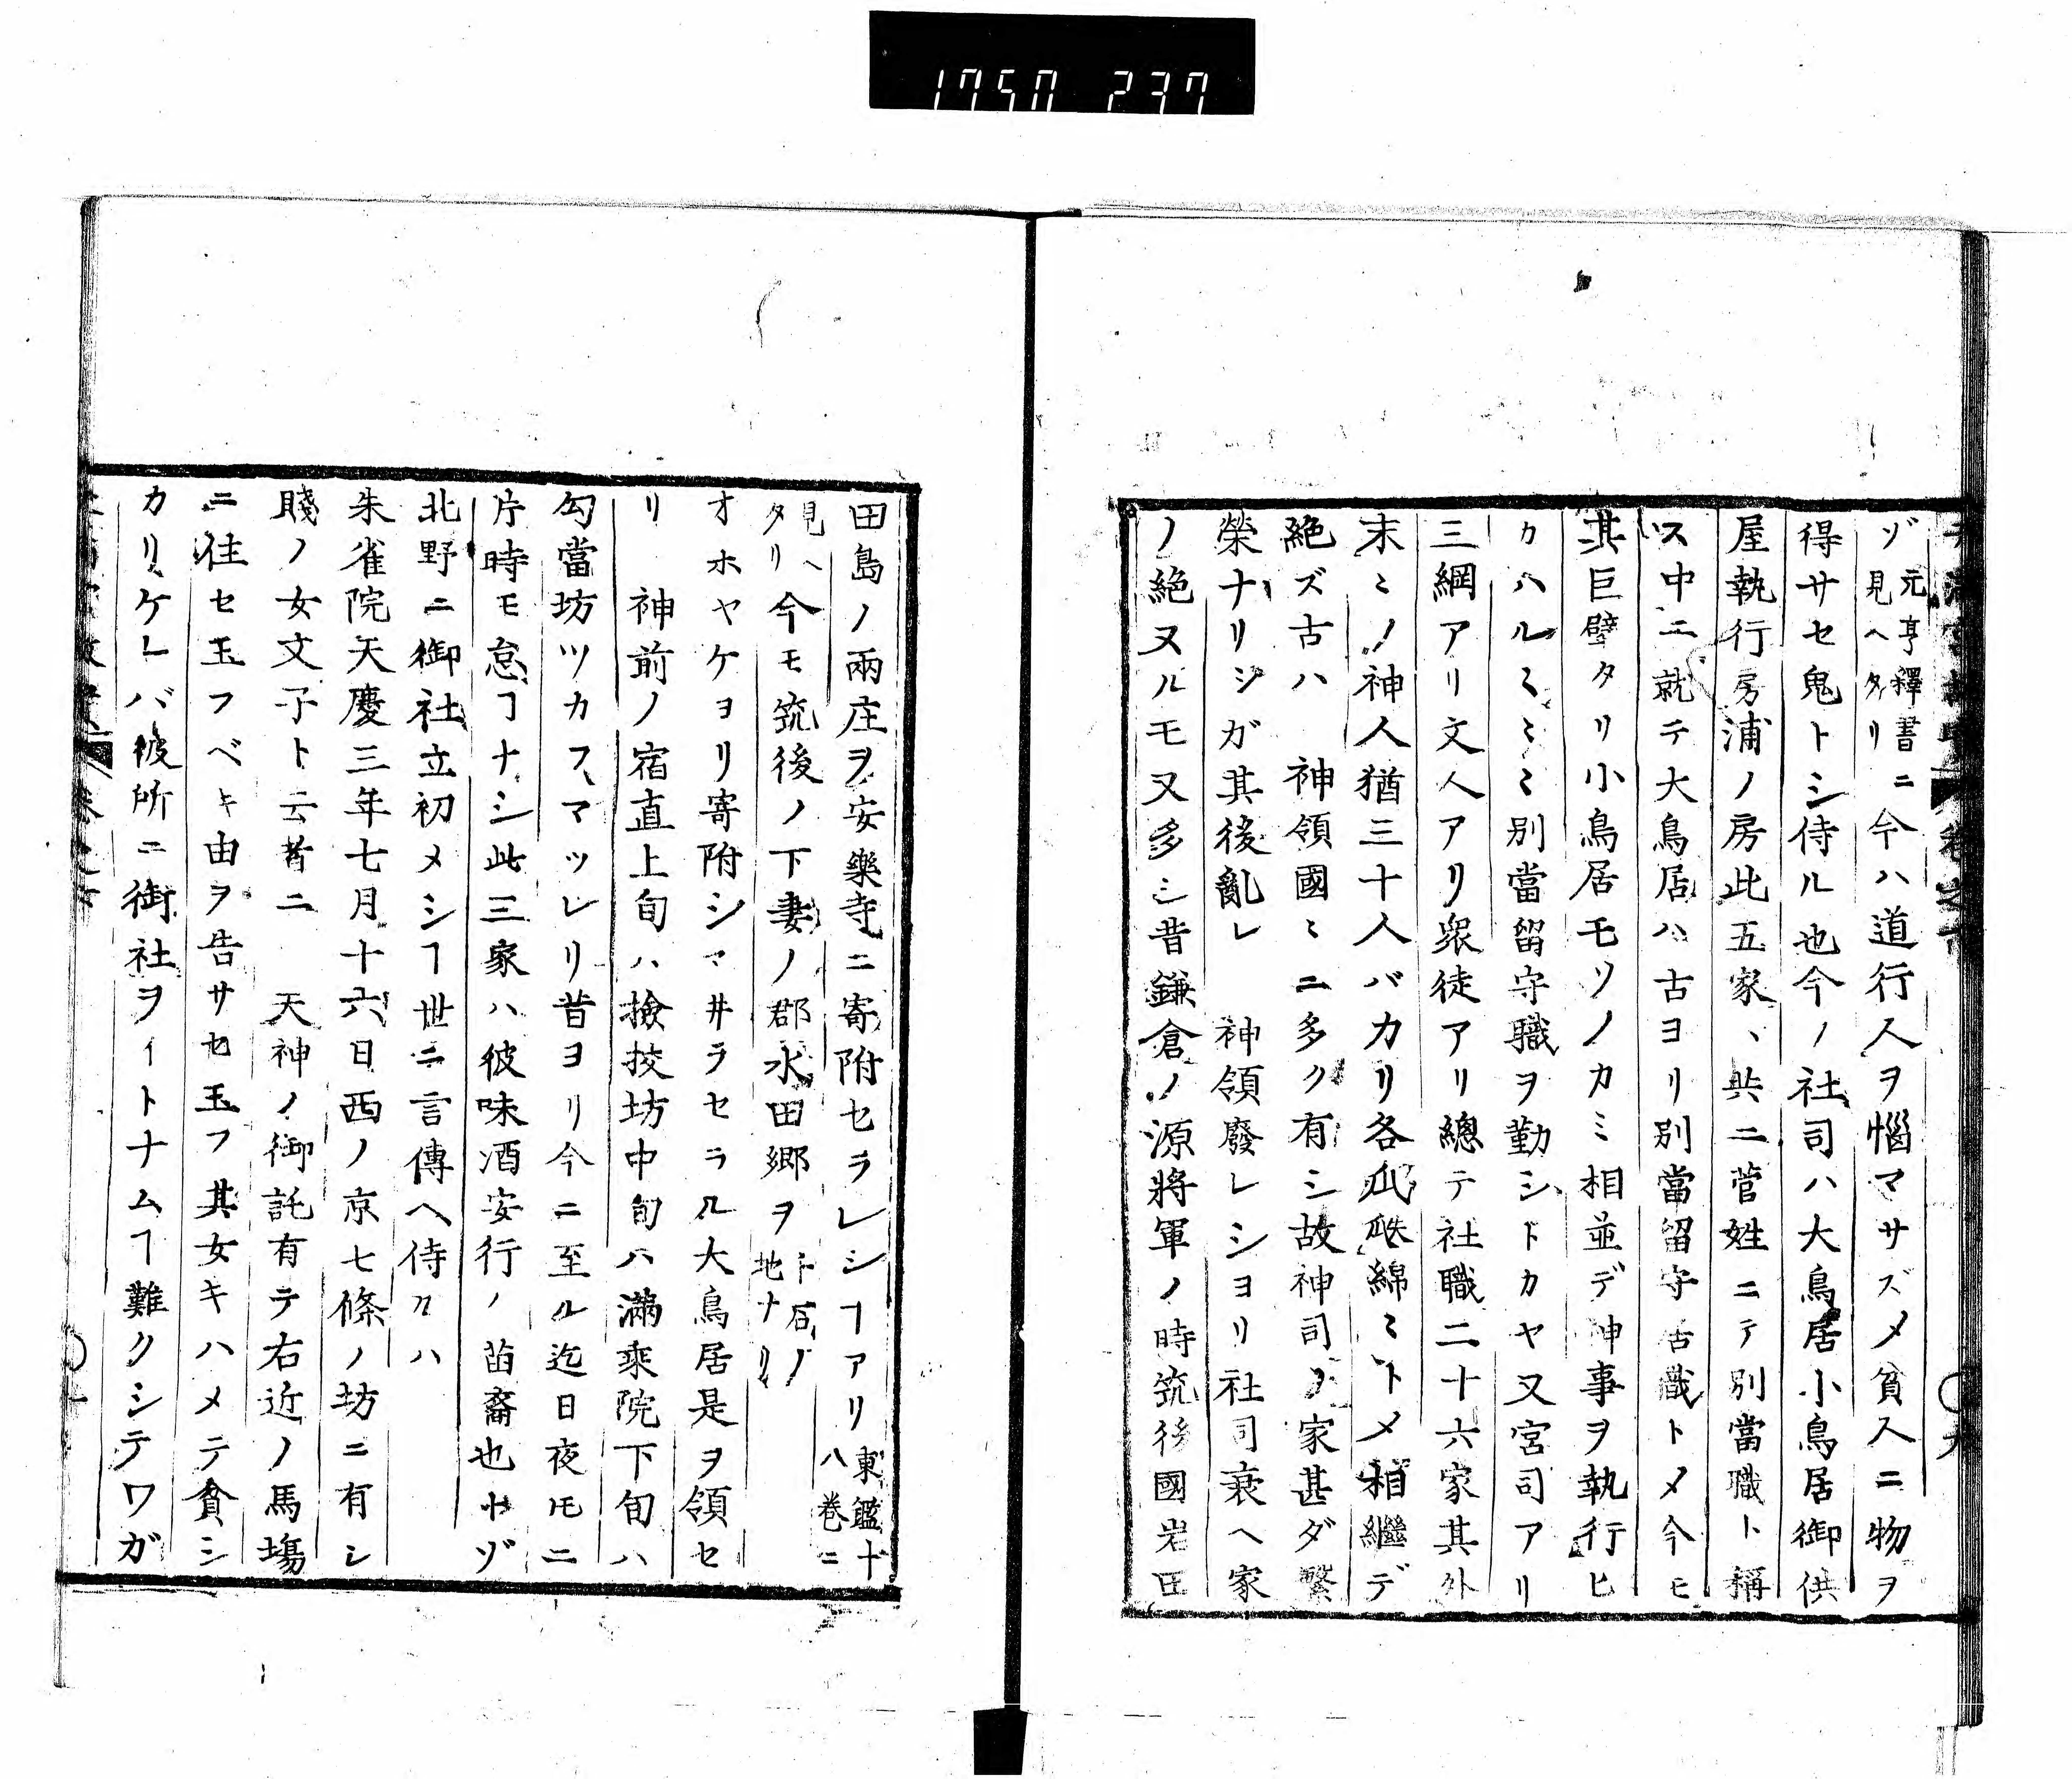 1750 237
ヅ元亨釋書ニ見ヘタリ今ハ道行人ヲ惱マサズメ貧人ニ物ヲ
得サセ鬼トシ侍ル也今ノ社司ハ大鳥居小鳥居御供
屋執行房浦ノ房此五家ヽ共ニ菅姓ニテ別當職ト稱
ス中ニ就テ大鳥居ハ古ヨリ別當留守古職トメ今モ
其巨擘タリ小鳥居モソノカミ相並デ神事ヲ執行ヒ
カハルミミミ別當留守職ヲ勤シトカヤ又宮司アリ
三綱アリ文人アリ衆徒アリ總テ社職二十六家其外
末ミノ神人猶三十人バカリ各瓜瓞綿ミトメ相繼デ
絶ズ古ハ 神領國ミニ多ク有シ故神司ノ家甚ダ繁
榮ナリシガ其後亂レ 神領廢レショリ社司衰ヘ家
ノ絶ヌルモ又多シ昔鎌倉ノ源將軍ノ時筑後國岩田
田島ノ兩庄ヲ安樂寺ニ寄附セラレシヿアリ東鑑十八巻ニ
見ヘタリ今モ筑後ノ下妻ノ郡水田郷ヲ千石ノ地ナリ
オホヤケヨリ寄附シマ井ラセラル大鳥居是ヲ領セ
リ 神前ノ宿直上旬ハ撿挍坊中旬ハ滿乘院下旬ハ
勾當坊ツカフマツレリ昔ヨリ今ニ至ル迄日夜モニ
片時モ怠ヿナシ此三家ハ彼味酒安行ノ苗裔也トゾ
北野ニ御社立初メシヿ世ニ言傳ヘ侍ルハ
朱雀院天慶三年七月十六日西ノ京七條ノ坊ニ有シ
賤ノ女文子ト云者ニ 天神ノ御託有テ右近ノ馬塲
ニ住セ玉フベキ由ヲ告サセ玉フ其女キハメテ貧シ
カリケレバ彼所ニ御社ヲイトナムヿ難クシテワガ